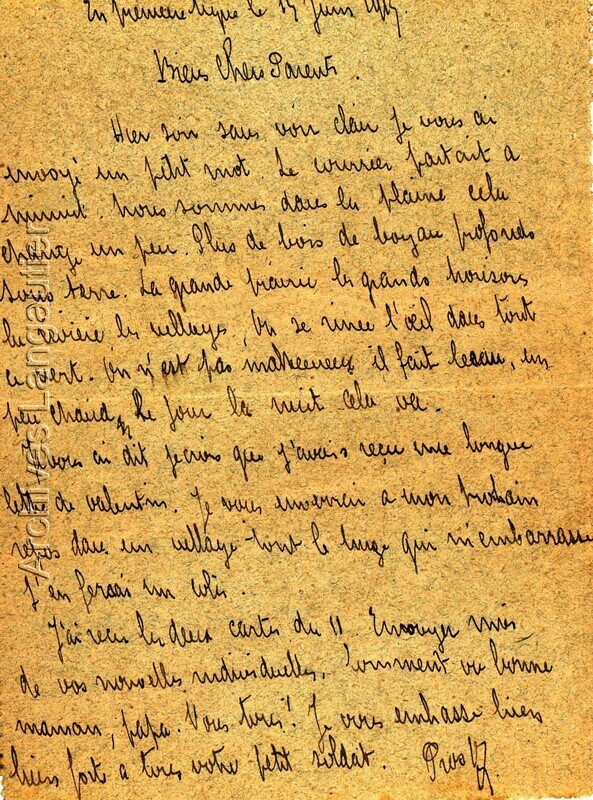 En première ligne le 17 Juin 1917
Biens Chers Parents.
Hier soir sans voir clair je vous ai
envoyé un petit mot. Le courrier partait a
minuit. Nous sommes dans la plaine cela
change un peu. Plus de bois de boyau profonds
sous terre. La grande prairie les grands horizons
la rivière les villages, On se rince l'œil dans tout
ce vert. On n'est pas malheureux il fait beau, un
peu chaud, Le jour la nuit cela va.
Je vous ai dit je crois que j'avais reçu une longue
lettre de Valentin. Je vous enverrai a mon prochain
repos dans un village tout le linge qui m'embarrasse
J'en ferai un colis.
J'ai reçu les deux cartes du 11. Envoyer moi
de vos nouvelles individuelles, Comment va bonne
maman, papa. Vous tous! Je vous embrasse biens
biens fort a tous votre petit soldat. Prosp
Archives Langautier